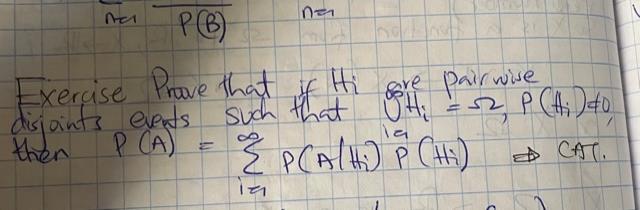 n=1 P(B) n=1
Exercise Prove that if Hi are pairwise
disjoints events such that ∞∪i=1 Hi = Ω, P(Hi)≠0,
then P(A) = ∞∑i=1 P(A|Hi) P(Hi) ⇒